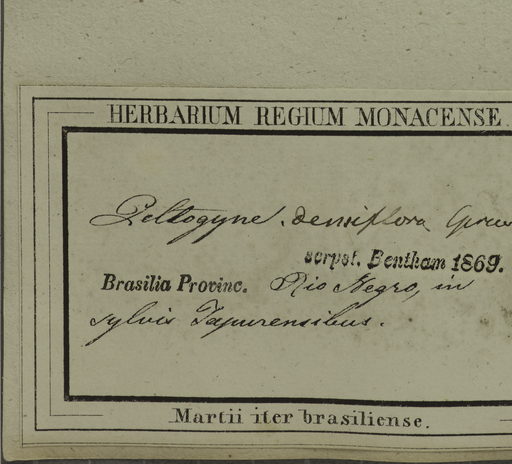 HERBARIUM REGIUM MONACENSE.
Peltogyne densiflora Spruce
scrpst. Bentham 1869.
Brasilia Provinc. Rio Negro, in
sylvis Japurensibus.
Martii iter brasiliense.